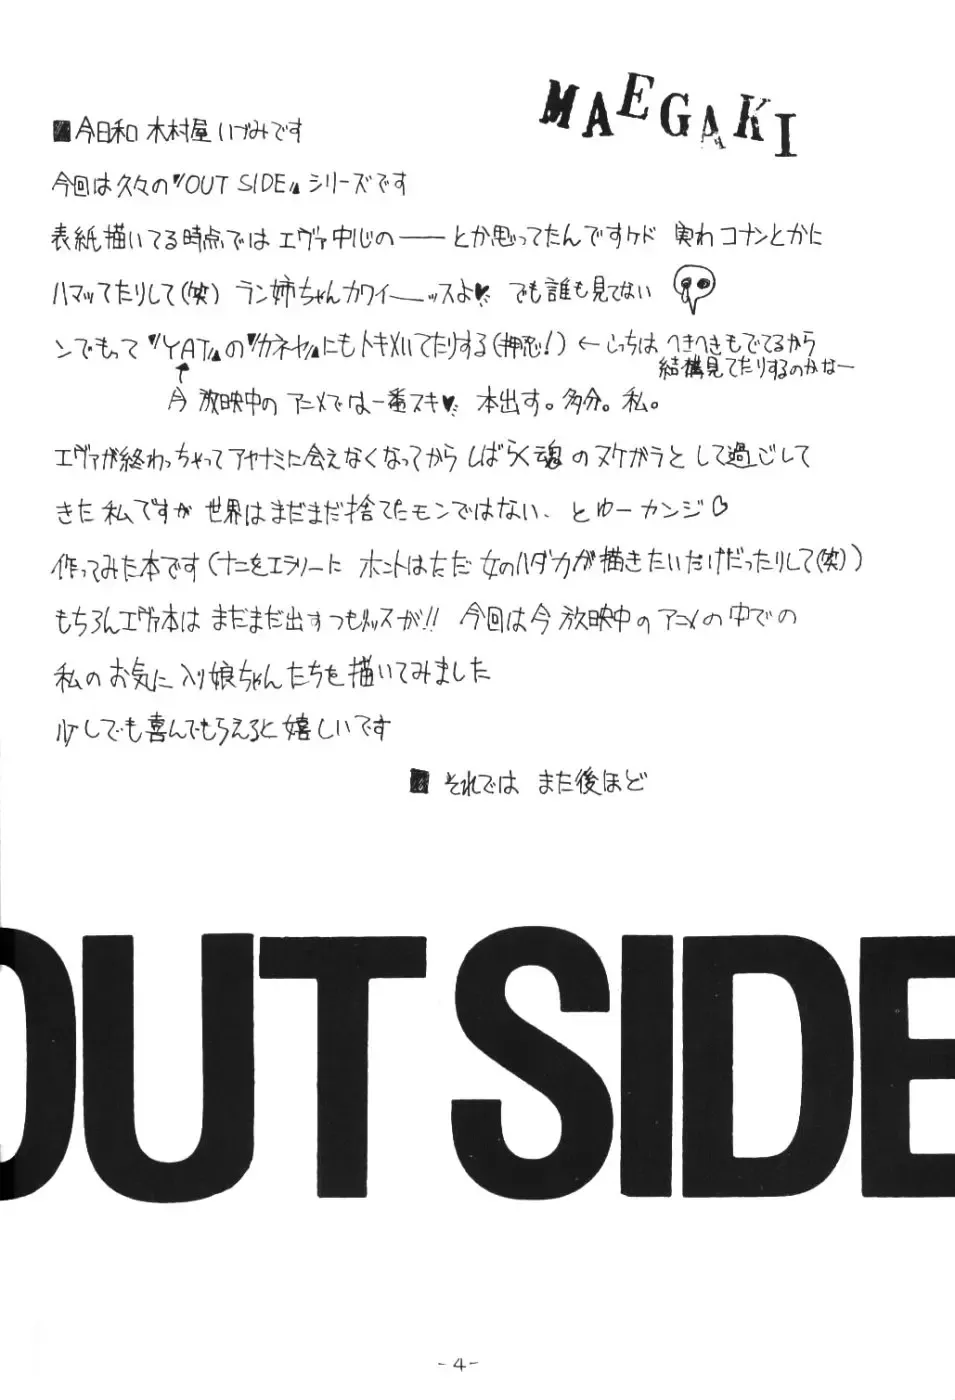 MAEGAKI
■今日和 木村屋いづみです
今回は久々の『OUT SIDE』シリーズです
表紙描いてる時点では エヴァ中心の――とか思ってたんですケド 実わ コナンとかに
ハマッてたりして(笑) ラン姉ちゃんカワイーッスよ♥ でも誰も見てない
ンでもって『YAT』の『カネヤ』にもトキメいてたりする(押忍!) ← こっちは へきへきもでてるから
結構見てたりするのかなー
↑
今 放映中の アニメでは一番スキ♥ 本出す。多分。私。
エヴァが終わっちゃって アヤナミに会えなくなってから しばらく魂のヌケガラとして過ごして
きた私ですが 世界はまだまだ捨てたモンではない、とゆーカンジ♡
作ってみた本です(ナニをエラソーに ホントはただ 女のハダカが描きたいだけだったりして(笑))
もちろんエヴァ本は まだまだ出すつもりッスが!! 今回は今 放映中のアニメの中での
私のお気に入り娘ちゃんたちを描いてみました
少しでも喜んでもらえると嬉しいです
■ それでは また後ほど
OUT SIDE
-4-